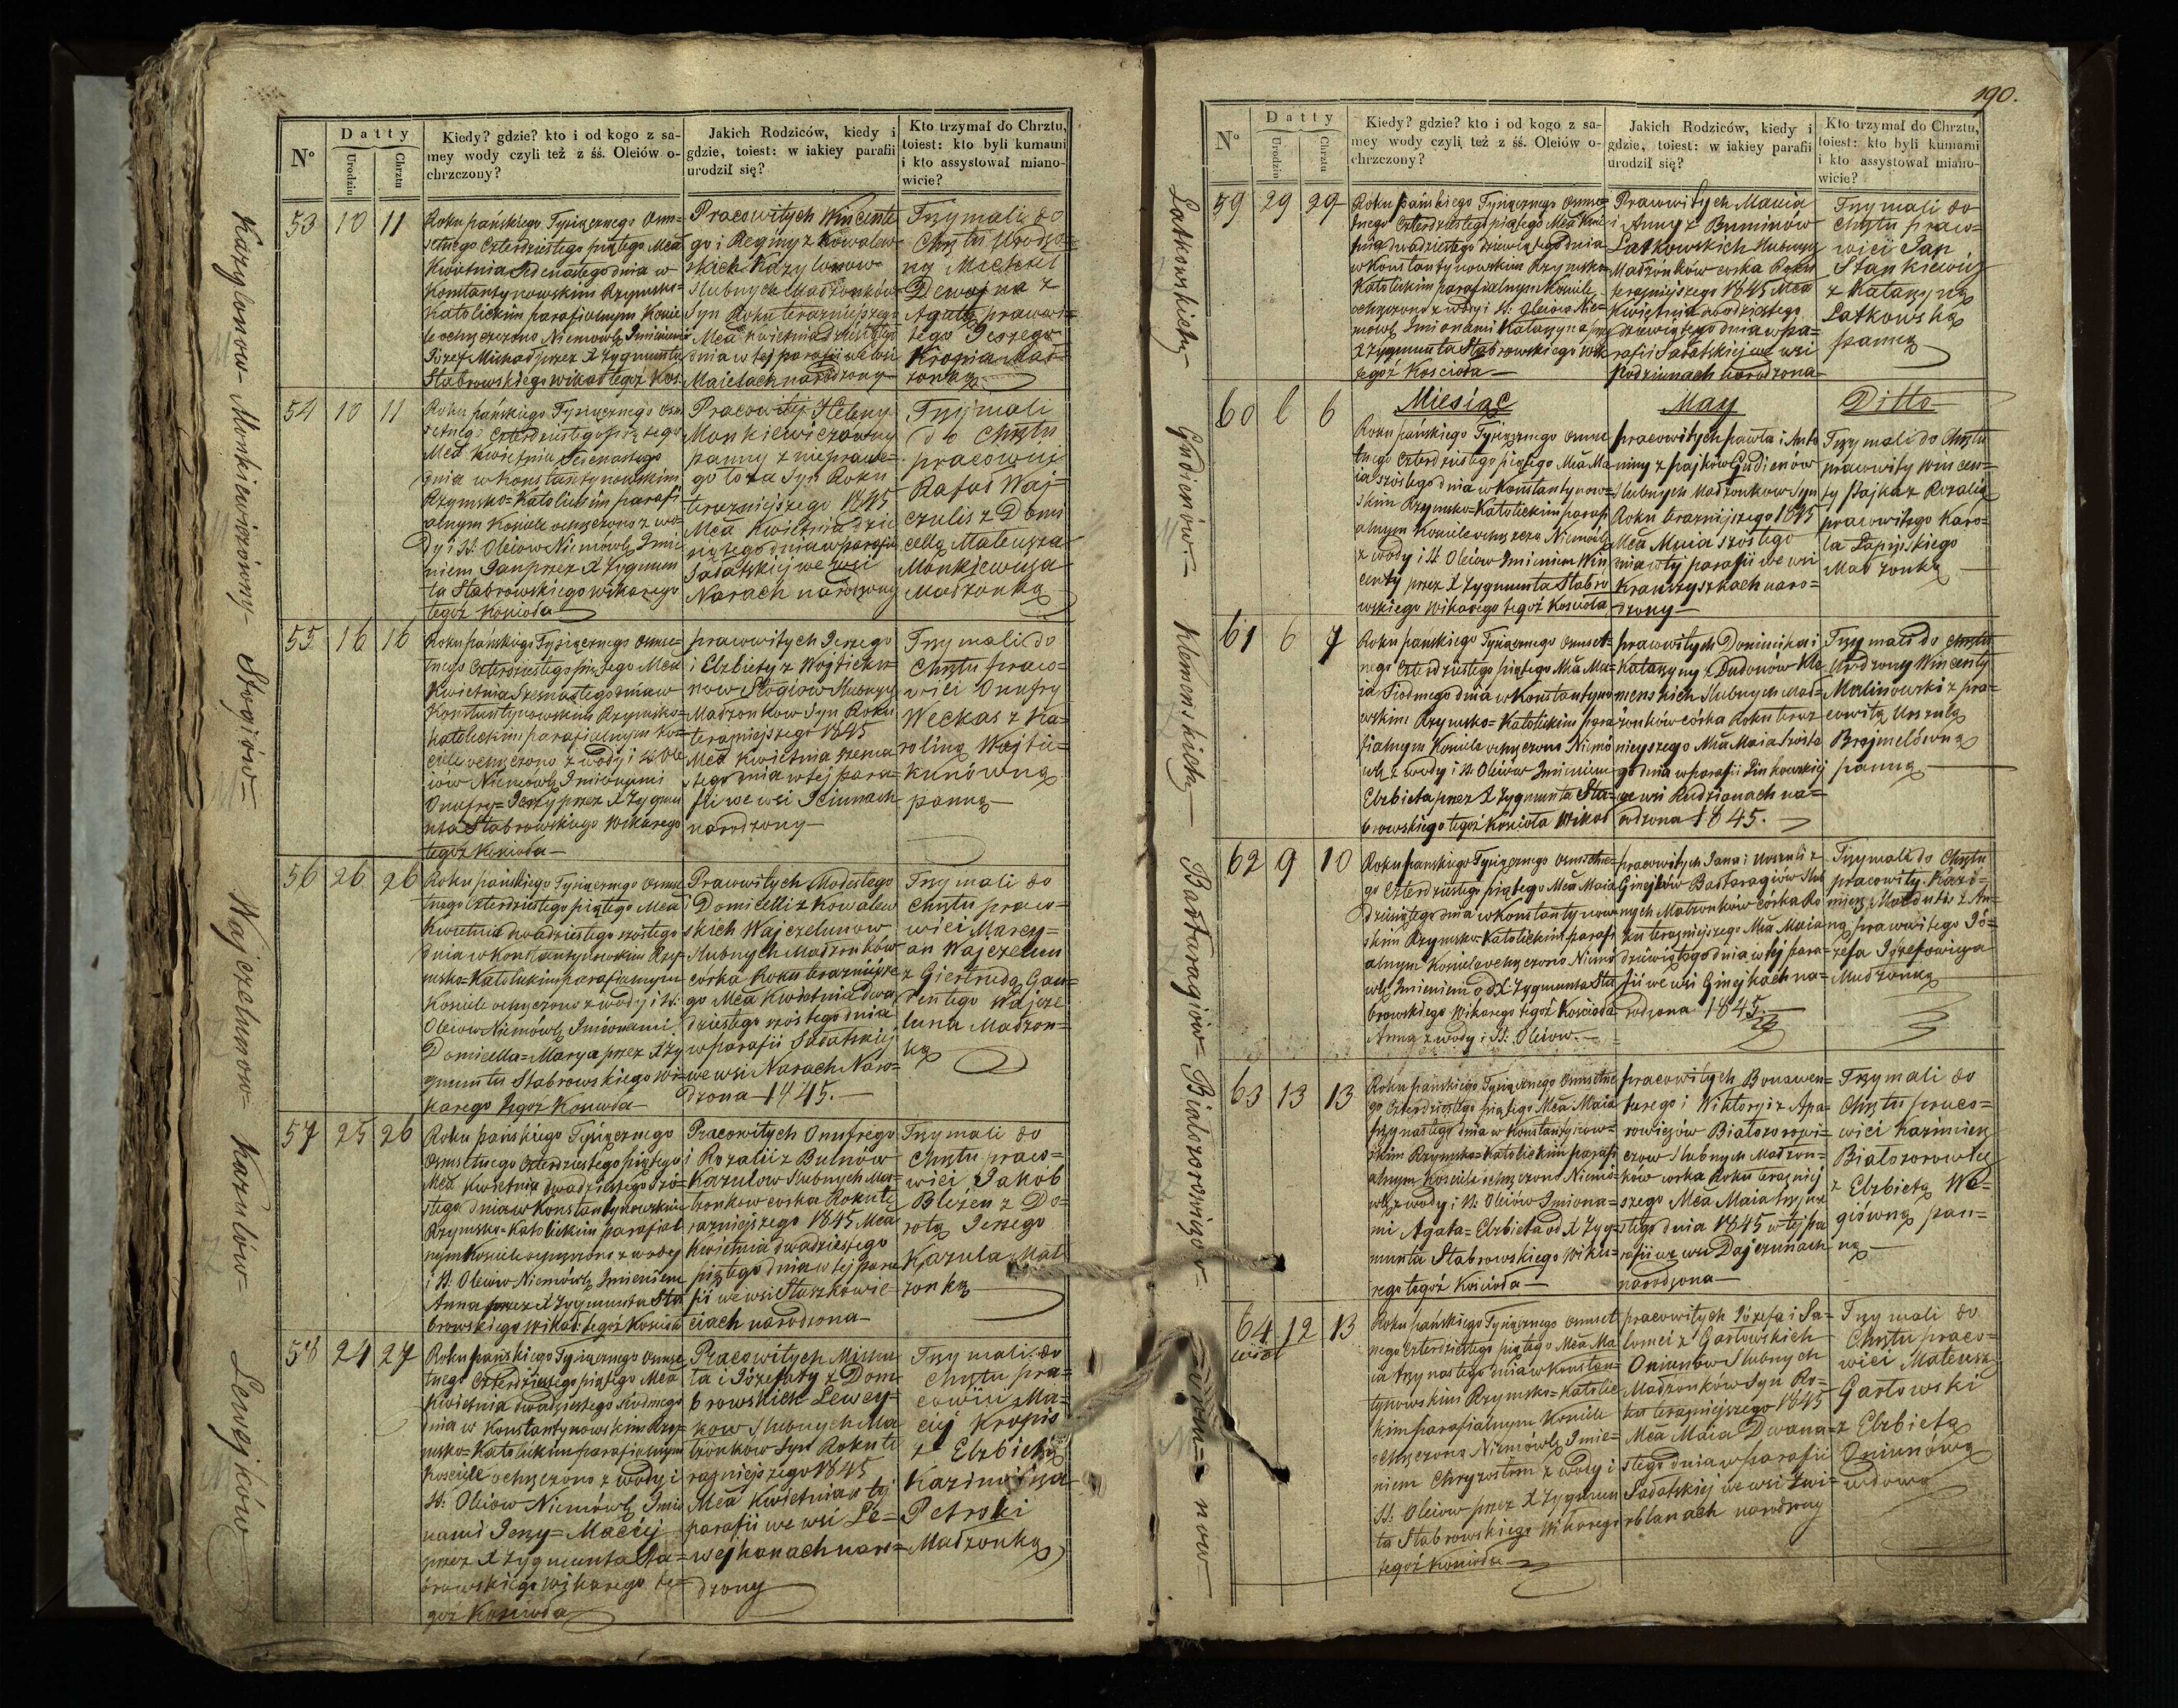 Kazylonow – Monkiewiczowny – Stogiów = Wajczelunow = Kazulów = Lewejków
N°
Datty
Urodzin
Chrztu
Kiedy? gdzie? kto i od kogo z sa-
mey wody czyli też z śś. Oleiów o-
chrzczony?
Jakich Rodziców, kiedy i
gdzie, toiest: w iakiey parafii
urodził się?
Kto trzymał do Chrztu,
toiest: kto byli kumami
i kto assystował miano-
wicie?
53 10 11
Roku pańskiego Tysiącznego Osm=
setnego Czterdziestego piątego Mca
Kwietnia Jedenastego dnia w
Konstantynowskim Rzymsko=
Katolickim parafialnym Koście
le ochrzczono Niemowlę Imieniem
Józef Michał przez X Zygmunta
Stabrowskiego wikar: tegoż Koś:
Pracowitych Wincente
go i Reginy z Kowalew
skich Kazylonow
Slubnych Małżonków
Syn Roku teraznieyszego
Mca Kwietnia dziesiątego
dnia w tej parafii we wsi
Maielach narodzony
Trzymali do
Chrztu Urodzo=
ny Michał
Dewojna z
Agatą pracowi=
tego Jerzego
Kropia Mał=
żonką
54 10 11
Roku pańskiego Tysiącznego Osm
setnego Czterdziestego piątego
Mca Kwietnia Jedenastego
dnia w Konstantynowskim
Rzymsko=Katolickim parafi
alnym Kościele ochrzczono z wo=
dy i St: Oleiow Niemowlę Imie
niem Jan przez X Zygmun
ta Stabrowskiego wikarego
tegoż Kościoła
Pracowitej Heleny
Monkiewiczowny
panny z nieprawe=
go łoża Syn Roku
teraznieyszego 1845
Mca Kwietnia dzie
siątego dnia w parafii
Sałatskiej we wsi
Narach narodzony
Trzymali
do Chrztu
pracowici
Rafał Waj=
czulis z Domi
cellą Mateusza
Monkiewicza
Małżonką
55 16 16
Roku pańskiego Tysiącznego Osmse=
tnego Czterdziestego piątego Mca
Kwietnia Szesnastego dnia w
Konstantynowskim Rzymsko=
Katolickim parafialnym Ko=
ściele ochrzczono z wody i St: Ole
iow Niemowlę Imionami
Onufry=Jerzy przez X Zygmu
nta Stabrowskiego wikarego
tegoż Kościoła
pracowitych Jerzego
i Elżbiety z Wojtieku=
now Stogiow Slubnych
Małżonkow Syn Roku
teraznieyszego 1845
Mca Kwietnia szesna
stego dnia w tej para=
fii we wsi Iciunach
narodzony
Trzymali do
Chrztu praco=
wici Onufry
Weckas z Ka=
roliną Wojtie=
kunówną
panną
56 26 26
Roku pańskiego Tysiącznego Osmse
tnego Czterdziestego piątego Mca
Kwietnia dwadziestego szóstego
dnia w Konstantynowskim Rzy=
msko=Katolickim parafialnym
Kościele ochrzczono z wody i St:
Oleiow Niemowlę Imionami
Domicella=Marya przez X Zy
gmunta Stabrowskiego wi=
karego tegoż Kościoła
Pracowitych Modestego
i Domicelli z Kowalew
skich Wajczelunow
Slubnych Małżonków
corka Roku teraznieysze
go Mca Kwietnia dwa
dziestego szóstego dnia
w parafii Sałatskiej
we wsi Narach Naro=
dzona 1845.
Trzymali do
Chrztu praco=
wici Marcy=
an Wajczelun
z Giertrudą Gau=
dentego Wajcze
luna Małżon=
ką
57 25 26
Roku pańskiego Tysiącznego
Osmsetnego Czterdziestego piątego
Mca Kwietnia dwadziestego szó=
stego dnia w Konstantynowskim
Rzymsko=Katolickim parafial
nym Kościele ochrzczono z wody
i St: Oleiow Niemówlę Imieniem
Anna przez X Zygmunta Sta
browskiego wikar: tegoż Kościoła
Pracowitych Onufrego
i Rozalii z Butnów
Kazulow Slubnych Mał=
żonkow corka Roku te
raznieyszego 1845 Mca
Kwietnia dwadziestego
piątego dnia w tej para
fii we wsi Staszkowie=
ciach narodzona
Trzymali do
Chrztu praco=
wici Jakób
Bleżen z Do=
rotą Jerzego
Kazula Mał
żonką
58 24 27
Roku pańskiego Tysiącznego Osmse
tnego Czterdziestego piątego Mca
Kwietnia dwadziestego siódmego
dnia w Konstantynowskim Rzy=
msko=Katolickim parafialnym
Kościele ochrzczono z wody i
St: Oleiow Niemówlę Imio
nami Jerzy=Maciej
przez X Zygmunta Sta=
browskiego wikarego te=
goż Kościoła
Pracowitych Micha
ła i Józefaty z Dom
browskich Lewey=
kow Slubnych Ma
łżonkow Syn Roku te
raznieyszego 1845
Mca Kwietnia w tej
parafii we wsi Le=
wejkanach naro=
dzony
Trzymali do
Chrztu pra=
cowici Ma=
ciej Kropis
z Elżbietą
Kazimierza
Petroki
Małżonką
190.
Łatkowskich – Gudienów = Klemenskich – Bałtaragiów = Białozorowiczow – now
N°
Datty
Urodzin
Chrztu
Kiedy? gdzie? kto i od kogo z sa-
mey wody czyli też z śś. Oleiów o-
chrzczony?
Jakich Rodziców, kiedy i
gdzie, toiest: w iakiey parafii
urodził się?
Kto trzymał do Chrztu,
toiest: kto byli kumami
i kto assystował miano-
wicie?
59 29 29
Roku pańskiego Tysiącznego Osmse=
tnego Czterdziestego piątego Mca Kwie
tnia dwadziestego dziewiątego dnia
w Konstantynowskim Rzymsko
Katolickim parafialnym Kościele
ochrzczono z wody i St: Oleiow Nie=
mowlę Imionami Katarzyna przez
X Zygmunta Stabrowskiego wik
tegoż Kościoła
Pracowitych Macia
i Anny z Buminów
Łatkowskich Slubnych
Małżonków corka Roku
teraznieyszego 1845 Mca
Kwietnia dwudziestego
dziewiątego dnia w pa=
rafii Sałatskiej we wsi
Podziunach narodzona
Trzymali do
chrztu praco=
wici Jan
Stankiewicz
z Katarzyną
Łatkowską
panną
Miesiąc May Ditto
60 6 6
Roku pańskiego Tysiącznego Osmse
tnego Czterdziestego piątego Mca Ma
ia szóstego dnia w Konstantynow=
skim Rzymsko=Katolickim parafi
alnym Kościele ochrzczono Niemowlę
z wody i St Oleiow Imieniem Win
centy przez X Zygmunta Stabro
wskiego wikarego tegoż Kościoła
pracowitych Pawła i Anto
niny z Pajków Gudienów
Slubnych Małżonkow Syn
Roku teraznieyszego 1845
Mca Maia szóstego
dnia w tej parafii we wsi
Krawszyszkach naro=
dzony
Trzymali do Chrztu
pracowity Wincen=
ty Pajka z Rozalią
pracowitego Karo=
la Łapinskiego
Małżonką
61 6 7
Roku pańskiego Tysiącznego Osmset=
nego Czterdziestego piątego Mca Ma=
ia Siodmego dnia w Konstantyno
wskim Rzymsko=Katolickim para
fialnym Kościele ochrzczono Niemo
wlę z wody i St: Oleiów Imieniem
Elżbieta przez X Zygmunta Sta=
browskiego tegoż Kościoła Wikar
pracowitych Dominika i
Katarzyny z Dudonow Kle
menskich Slubnych Mał=
żonków córka Roku teraz
nieyszego Mca Maia szósto
go dnia w parafii Linkowskiej
we wsi Kudzianach na=
rodzona 1845.
Trzymali do Chrztu
Urodzony Wincenty
Malinowski z pra=
cowitą Urszulą
Brejmelówną
panną
62 9 10
Roku pańskiego Tysiącznego Osmsetne=
go Czterdziestego piątego Mca Maia
dziesiątego dnia w Konstantynow
skim Rzymsko=Katolickim parafi
alnym Kościele ochrzczono Niemo
wlę Imieniem od X Zygmunta Sta
browskiego Wikarego tegoż Kościoła
Anna z wody i St: Oleiow.
pracowitych Jana i Urszuli z
Gineyków Bałtaragiów Slub
nych Małżonków córka Ro
ku teraznieyszego Mca Maia
dziewiątego dnia w tej para=
fii we wsi Ginejkach na=
rodzona 1845.
Trzymali do Chrztu
pracowity Kazi=
mierz Małdutis z An=
ną pracowitego Jó=
zefa Józefowicza
Małżonką
63 13 13
Roku pańskiego Tysiącznego Osmsetne
go Czterdziestego piątego Mca Maia
trzynastego dnia w Konstantynow=
skim Rzymsko=Katolickim parafi
alnym Kościele ochrzczono Niemo=
wlę z wody i St: Oleiów Imiona=
mi Agata=Elżbieta od X Zyg=
munta Stabrowskiego wika=
rego tegoż Kościoła
pracowitych Bonawen=
turego i Wiktoryi z Apa=
rowiczów Białozorowi=
czow Slubnych Małżon=
ków corka Roku teraźniej
szego Mca Maia trzyna
stego dnia 1845 w tej pa
rafii we wsi Dajczunach
narodzona
Trzymali do
Chrztu praco=
wici Kazimierz
Białozorowicz
z Elżbietą We=
giówną pan=
ną
64 12 13
Roku pańskiego Tysiącznego Osmset
nego Czterdziestego piątego Mca Ma
ia trzynastego dnia w Konstan=
tynowskim Rzymsko=Katolic
kim parafialnym Kościele
ochrzczono Niemówlę Imie=
niem Chryzostom z wody i
St: Oleiow przez X Zygmun
ta Stabrowskiego wikarego
tegoż Kościoła
pracowitych Józefa i Sa=
lomei z Garłowskich
Oniunów Slubnych
Małżonków Syn Ro=
ku teraznieyszego 1845
Mca Maia Dwana=
stego dnia w parafii
Sałatskiej we wsi Zwi=
rblanach narodzony
Trzymali do
Chrztu praco=
wici Mateusz
Garłowski
z Elżbietą
Oniunową
wdową